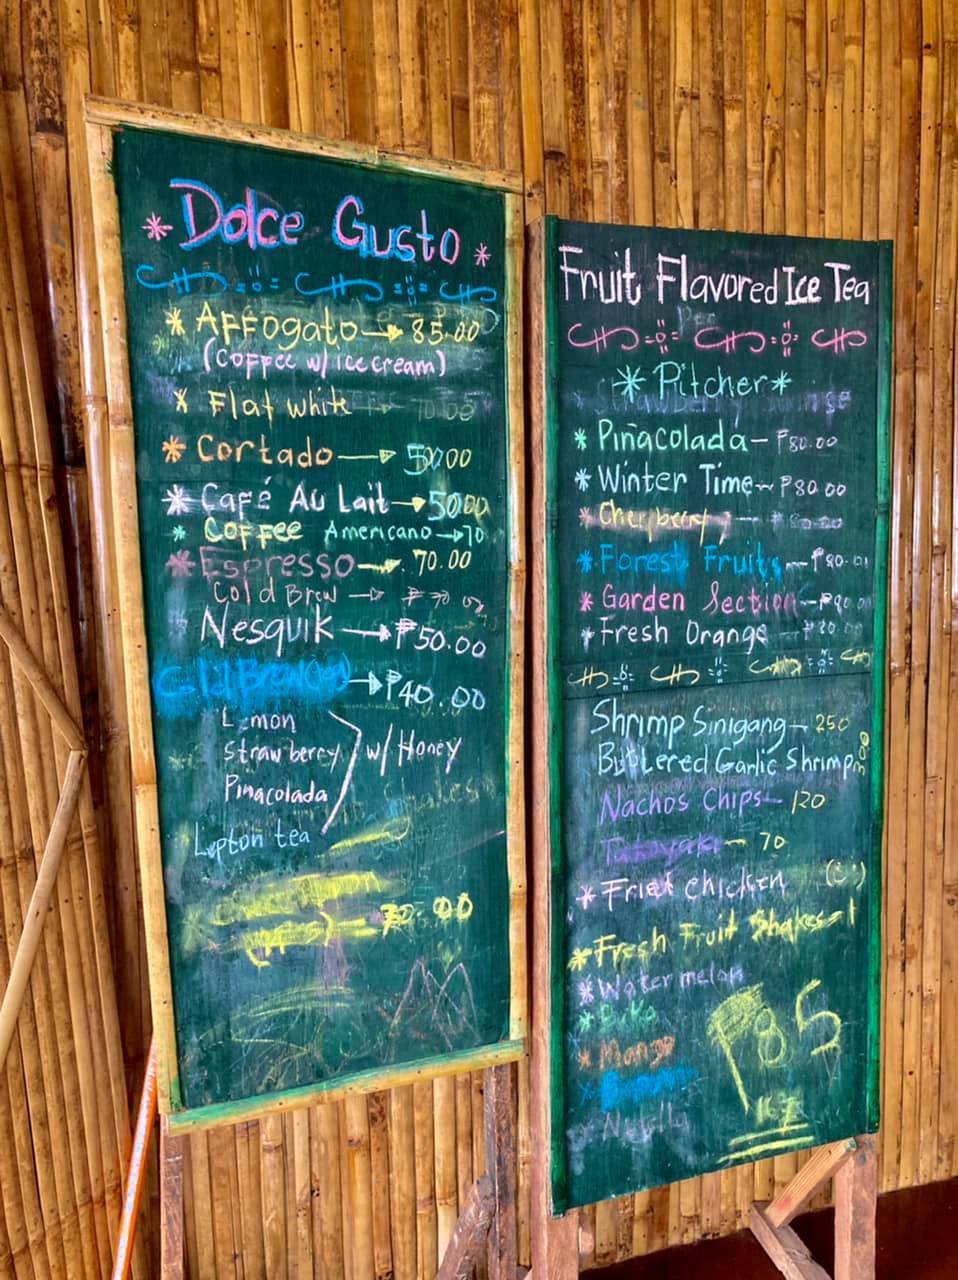 * Dolce Gusto *
* Affogato → 85.00
(Coffee w/ ice cream)
* Flat white
* Cortado → 50.00
* Café Au Lait → 50.00
* Coffee Americano → 70
* Espresso → 70.00
Cold Brew → ₱ 70.00
Nesquik → ₱50.00
Cold Brew → ₱40.00
Lemon
Strawberry w/ Honey
Pinacolada
Lupton tea
70.00
Fruit Flavored Ice Tea
* Pitcher *
* Piñacolada - ₱80.00
* Winter Time - ₱80.00
* Cherberry - ₱80.00
* Forest Fruits - ₱80.00
* Garden Section - ₱90.00
* Fresh Orange - ₱80.00
Shrimp Sinigang - 250
Buttered Garlic Shrimp 300
Nacho's Chips - 120
Takoyaki - 70
* Fried chicken
* Fresh Fruit Shakes
* Watermelon
* Buko
* Mango
* Nutella
₱85